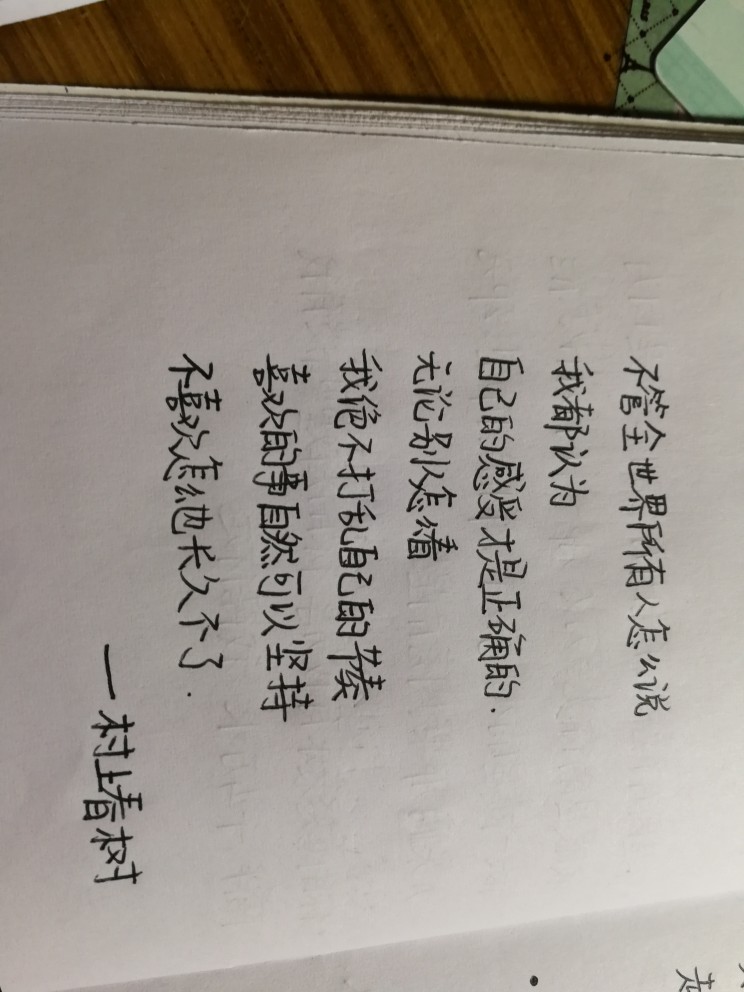 不管全世界所有人怎么说
我都认为
自己的感受才是正确的.
无论别人怎么看
我绝不打乱自己的节奏
喜欢的事自然可以坚持
不喜欢怎么也长久不了.
—村上春树